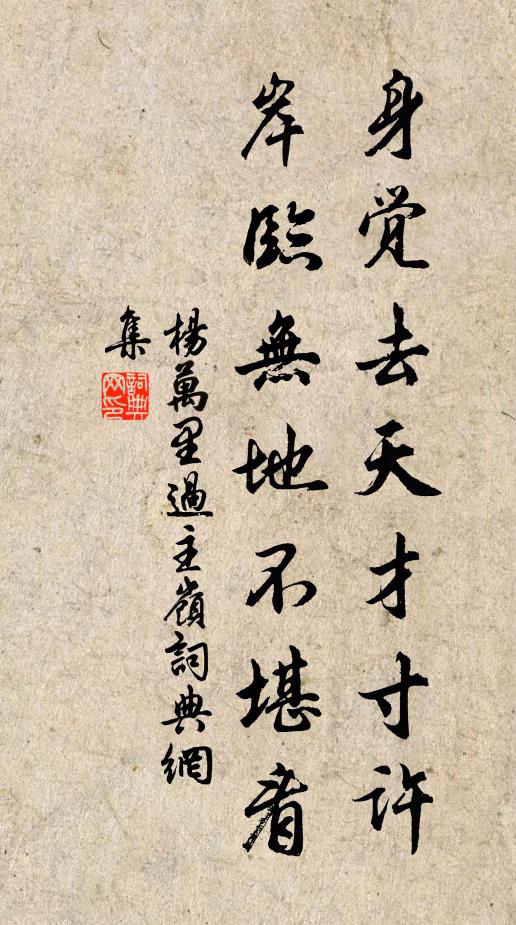 身覺去天才寸許
岸臨無地不堪看
楊萬里過主嶺詞典網
集
詞典
网印